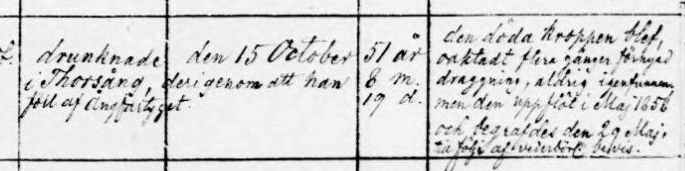 drunknade den 15 October
i Thorsång, derigenom att han
föll af Ångfartyget.
51 år
8 m.
19 d.
den döda kroppen blef,
oaktadt flera gånger förnyad
draggning, aldrig igenfunnen,
men den uppflöt i Maj 1856
och begrafdes den 29 Maj.
till följe af vederbörl. bevis.